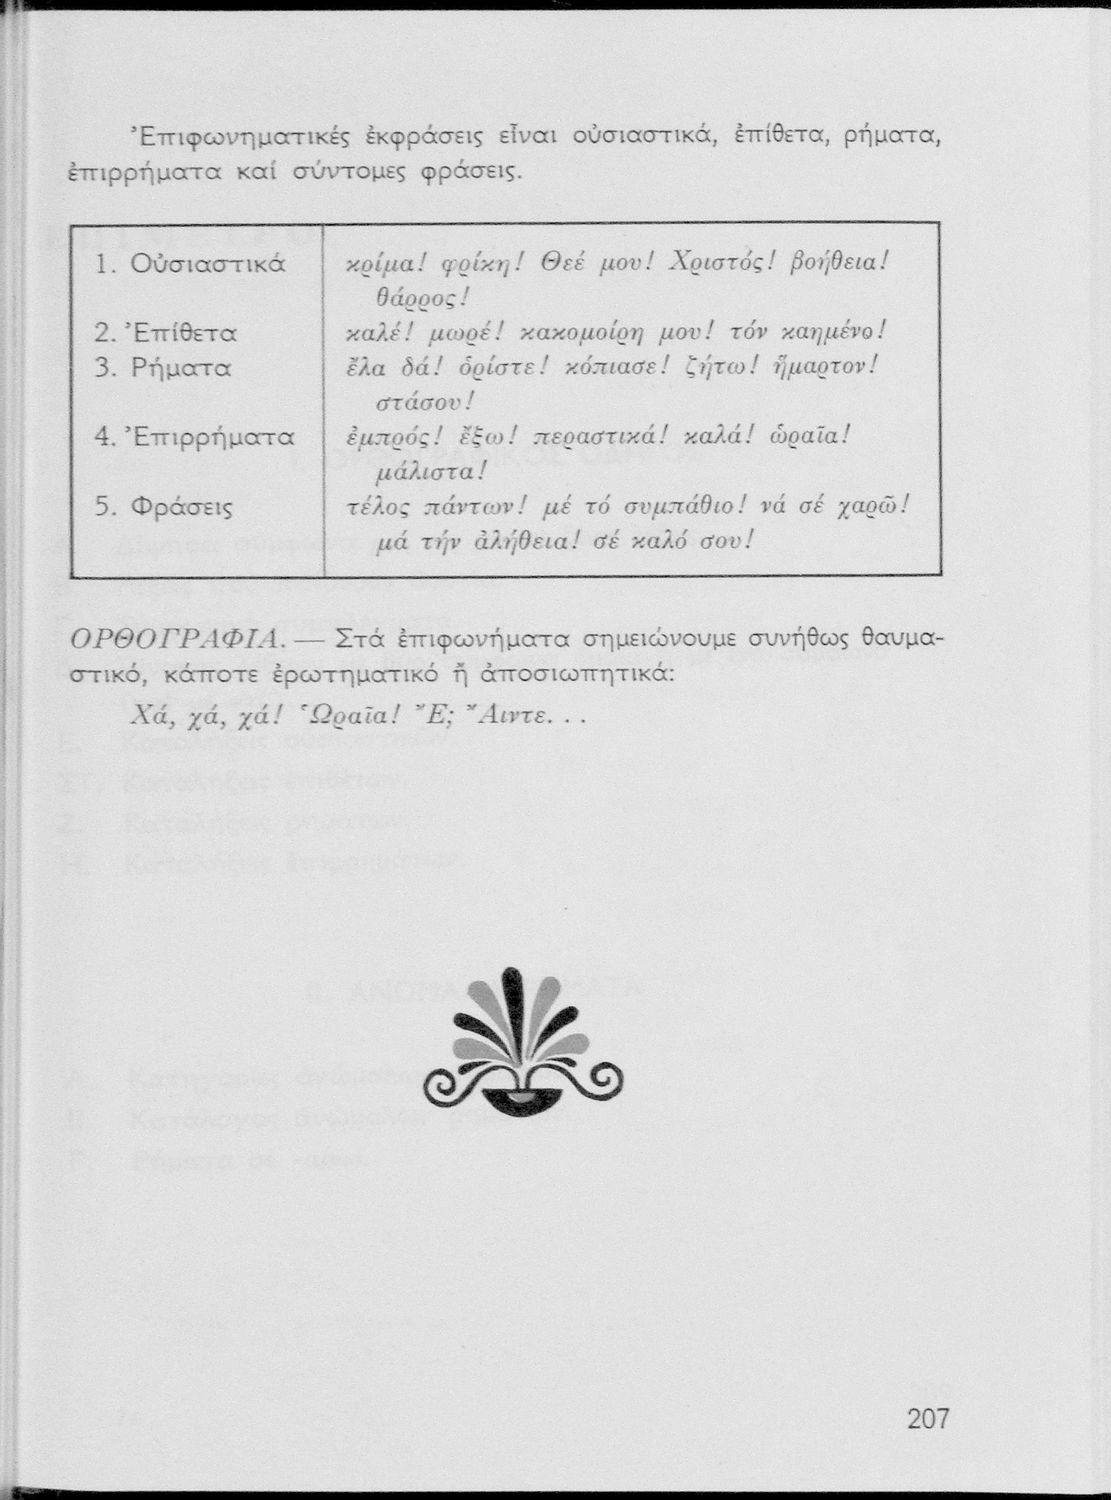 Ἐπιφωνηματικές ἐκφράσεις εἶναι οὐσιαστικά, ἐπίθετα, ρήματα,
ἐπιρρήματα καί σύντομες φράσεις.
1. Οὐσιαστικά κρίμα! φρίκη! Θεέ μου! Χριστός! βοήθεια!
θάρρος!
2. Ἐπίθετα καλέ! μωρέ! κακομοίρη μου! τόν καημένο!
3. Ρήματα ἔλα δά! ὁρίστε! κόπιασε! ζήτω! ἥμαρτον!
στάσου!
4. Ἐπιρρήματα ἐμπρός! ἔξω! περαστικά! καλά! ὡραῖα!
μάλιστα!
5. Φράσεις τέλος πάντων! μέ τό συμπάθιο! νά σέ χαρῶ!
μά τήν ἀλήθεια! σέ καλό σου!
ΟΡΘΟΓΡΑΦΙΑ. — Στά ἐπιφωνήματα σημειώνουμε συνήθως θαυμα-
στικό, κάποτε ἐρωτηματικό ἤ ἀποσιωπητικά:
Χά, χά, χά! Ὡραῖα! Ἔ; Ἄιντε. . .
207